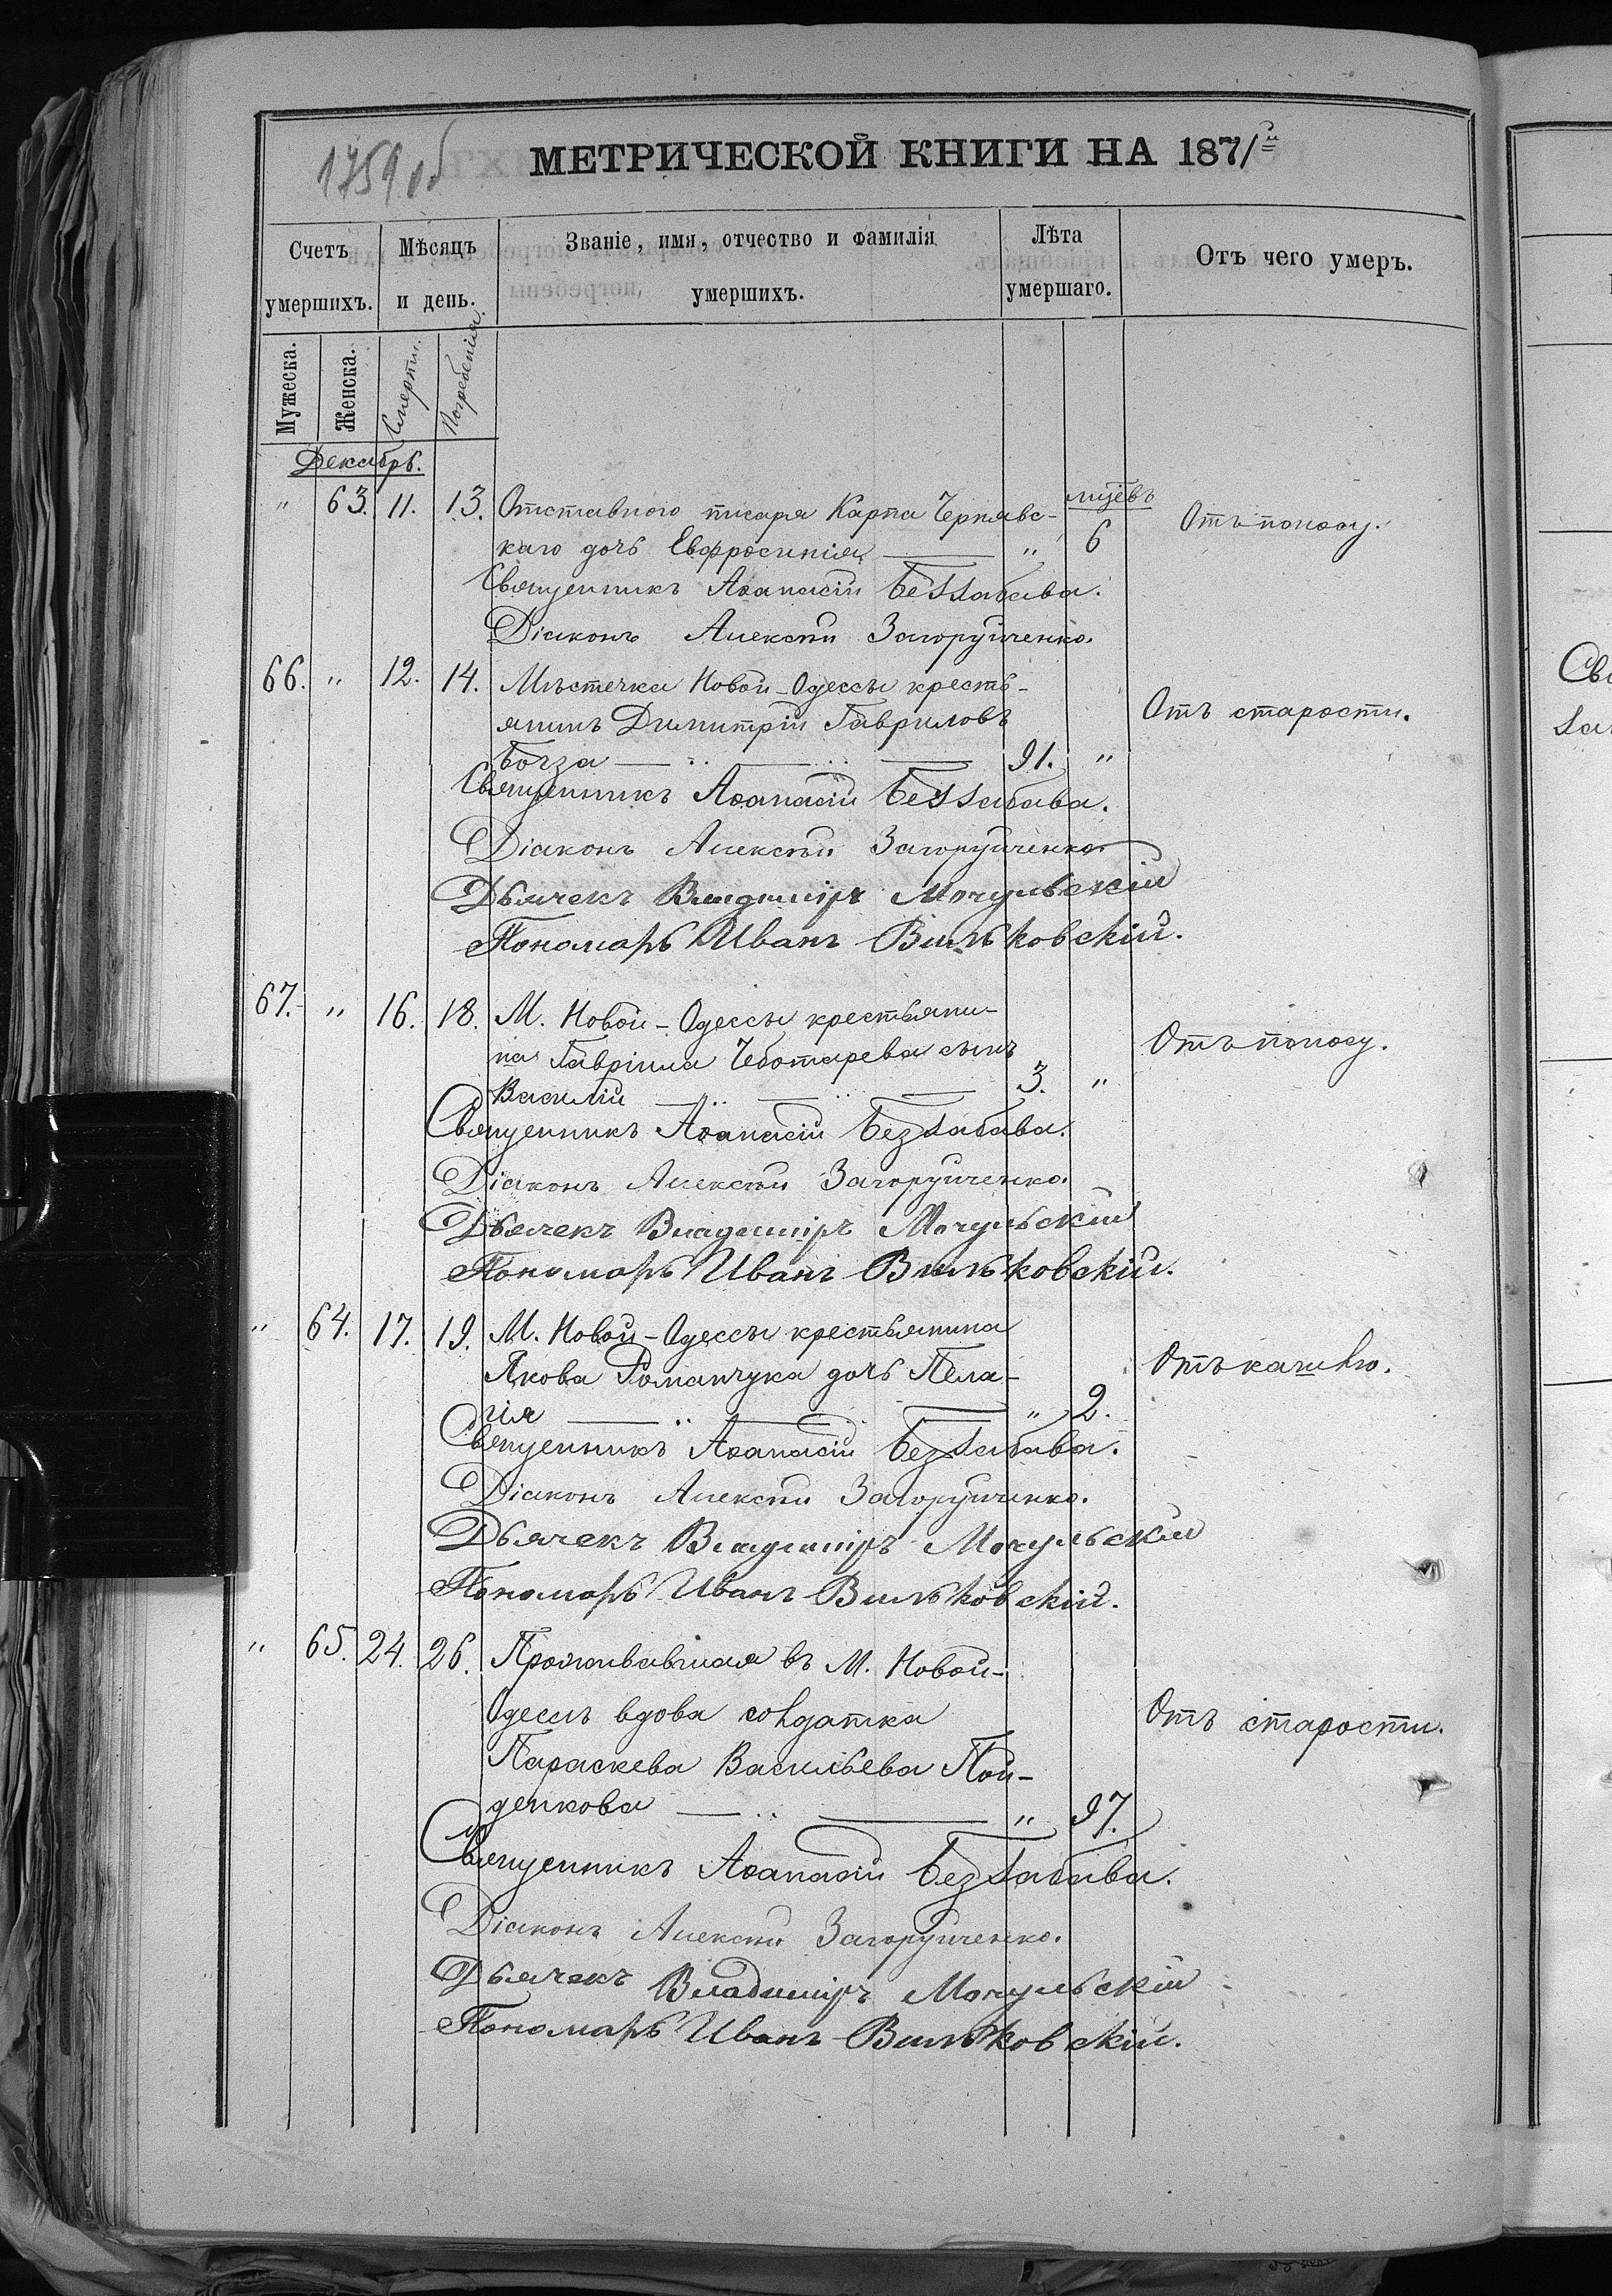 1759 об
МЕТРИЧЕСКОЙ КНИГИ НА 1871й
Счетъ умершихъ.
Мѣсяцъ и день.
Званіе, имя, отчество и фамилія умершихъ.
Лѣта умершаго.
Отъ чего умеръ.
Мужеска.
Женска.
Смерти.
Погребенія.
Декабрь.
" 63. 11. 13. Отставного писаря Карпа Чернявс- мцевъ
каго дочь Евфросинія " 6 Отъ поносу.
Священникъ Аѳанасій Беззабава.
Діаконъ Алексѣй Загоруйченко.
66. " 12. 14. Мѣстечка Новой-Одессы кресть-
янинъ Димитрій Гавриловъ Отъ старости.
91. "
Священникъ Аѳанасій Беззабава.
Діаконъ Алексѣй Загоруйченко
Дьячекъ Владиміръ Мочульскій
Пономарь Иванъ Вильковскій.
67. " 16. 18. М. Новой-Одессы крестьяни-
на Гавріила Чеботарева сынъ Отъ поносу.
Василій 3. "
Священникъ Аѳанасій Беззабава.
Діаконъ Алексѣй Загоруйченко.
Дьячекъ Владиміръ Мочульскій
Пономарь Иванъ Вильковскій.
" 64. 17. 19. М. Новой-Одессы крестьянина
Якова Романчука дочь Пела- Отъ кашлю.
гія " 2.
Священникъ Аѳанасій Беззабава.
Діаконъ Алексѣй Загоруйченко.
Дьячекъ Владиміръ Мочульскій
Пономарь Иванъ Вильковскій.
" 65. 24. 26. Проживавшая въ М. Новой-
Одессѣ вдова солдатка Отъ старости.
Параскева Васильева Пой-
денкова " 97.
Священникъ Аѳанасій Беззабава.
Діаконъ Алексѣй Загоруйченко.
Дьячекъ Владиміръ Мочульскій
Пономарь Иванъ Вильковскій.